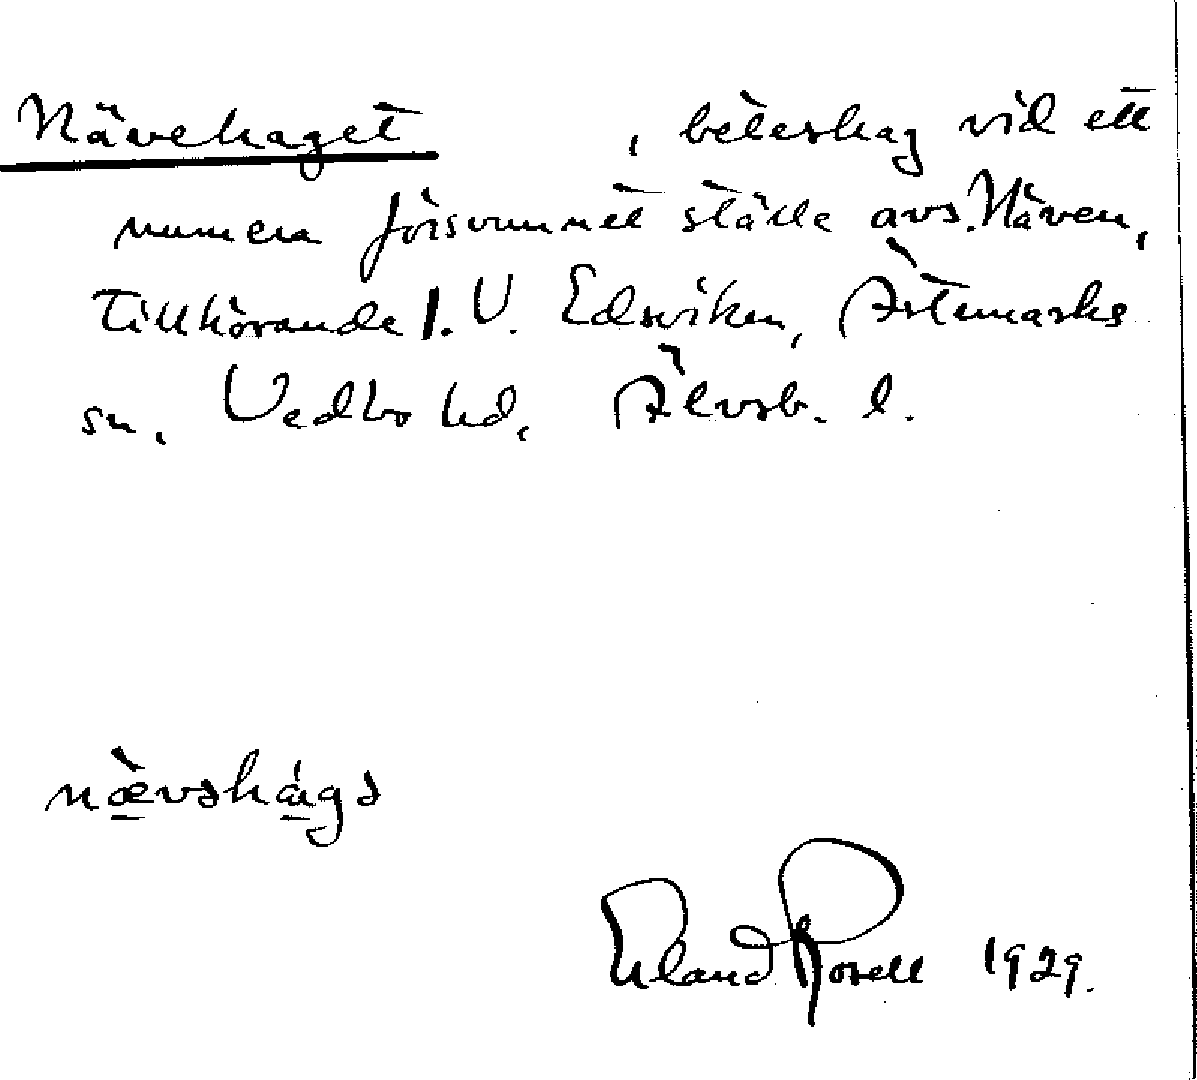 Nävehaget , beteshag vid ett
numera försvunnet ställe avs. Näven,
tillhörande 1. V. Edsviken, Ärtemarks
sn, Vedbo hd, Älvsb. l.
nævəhágə
Erland Rosell 1929.